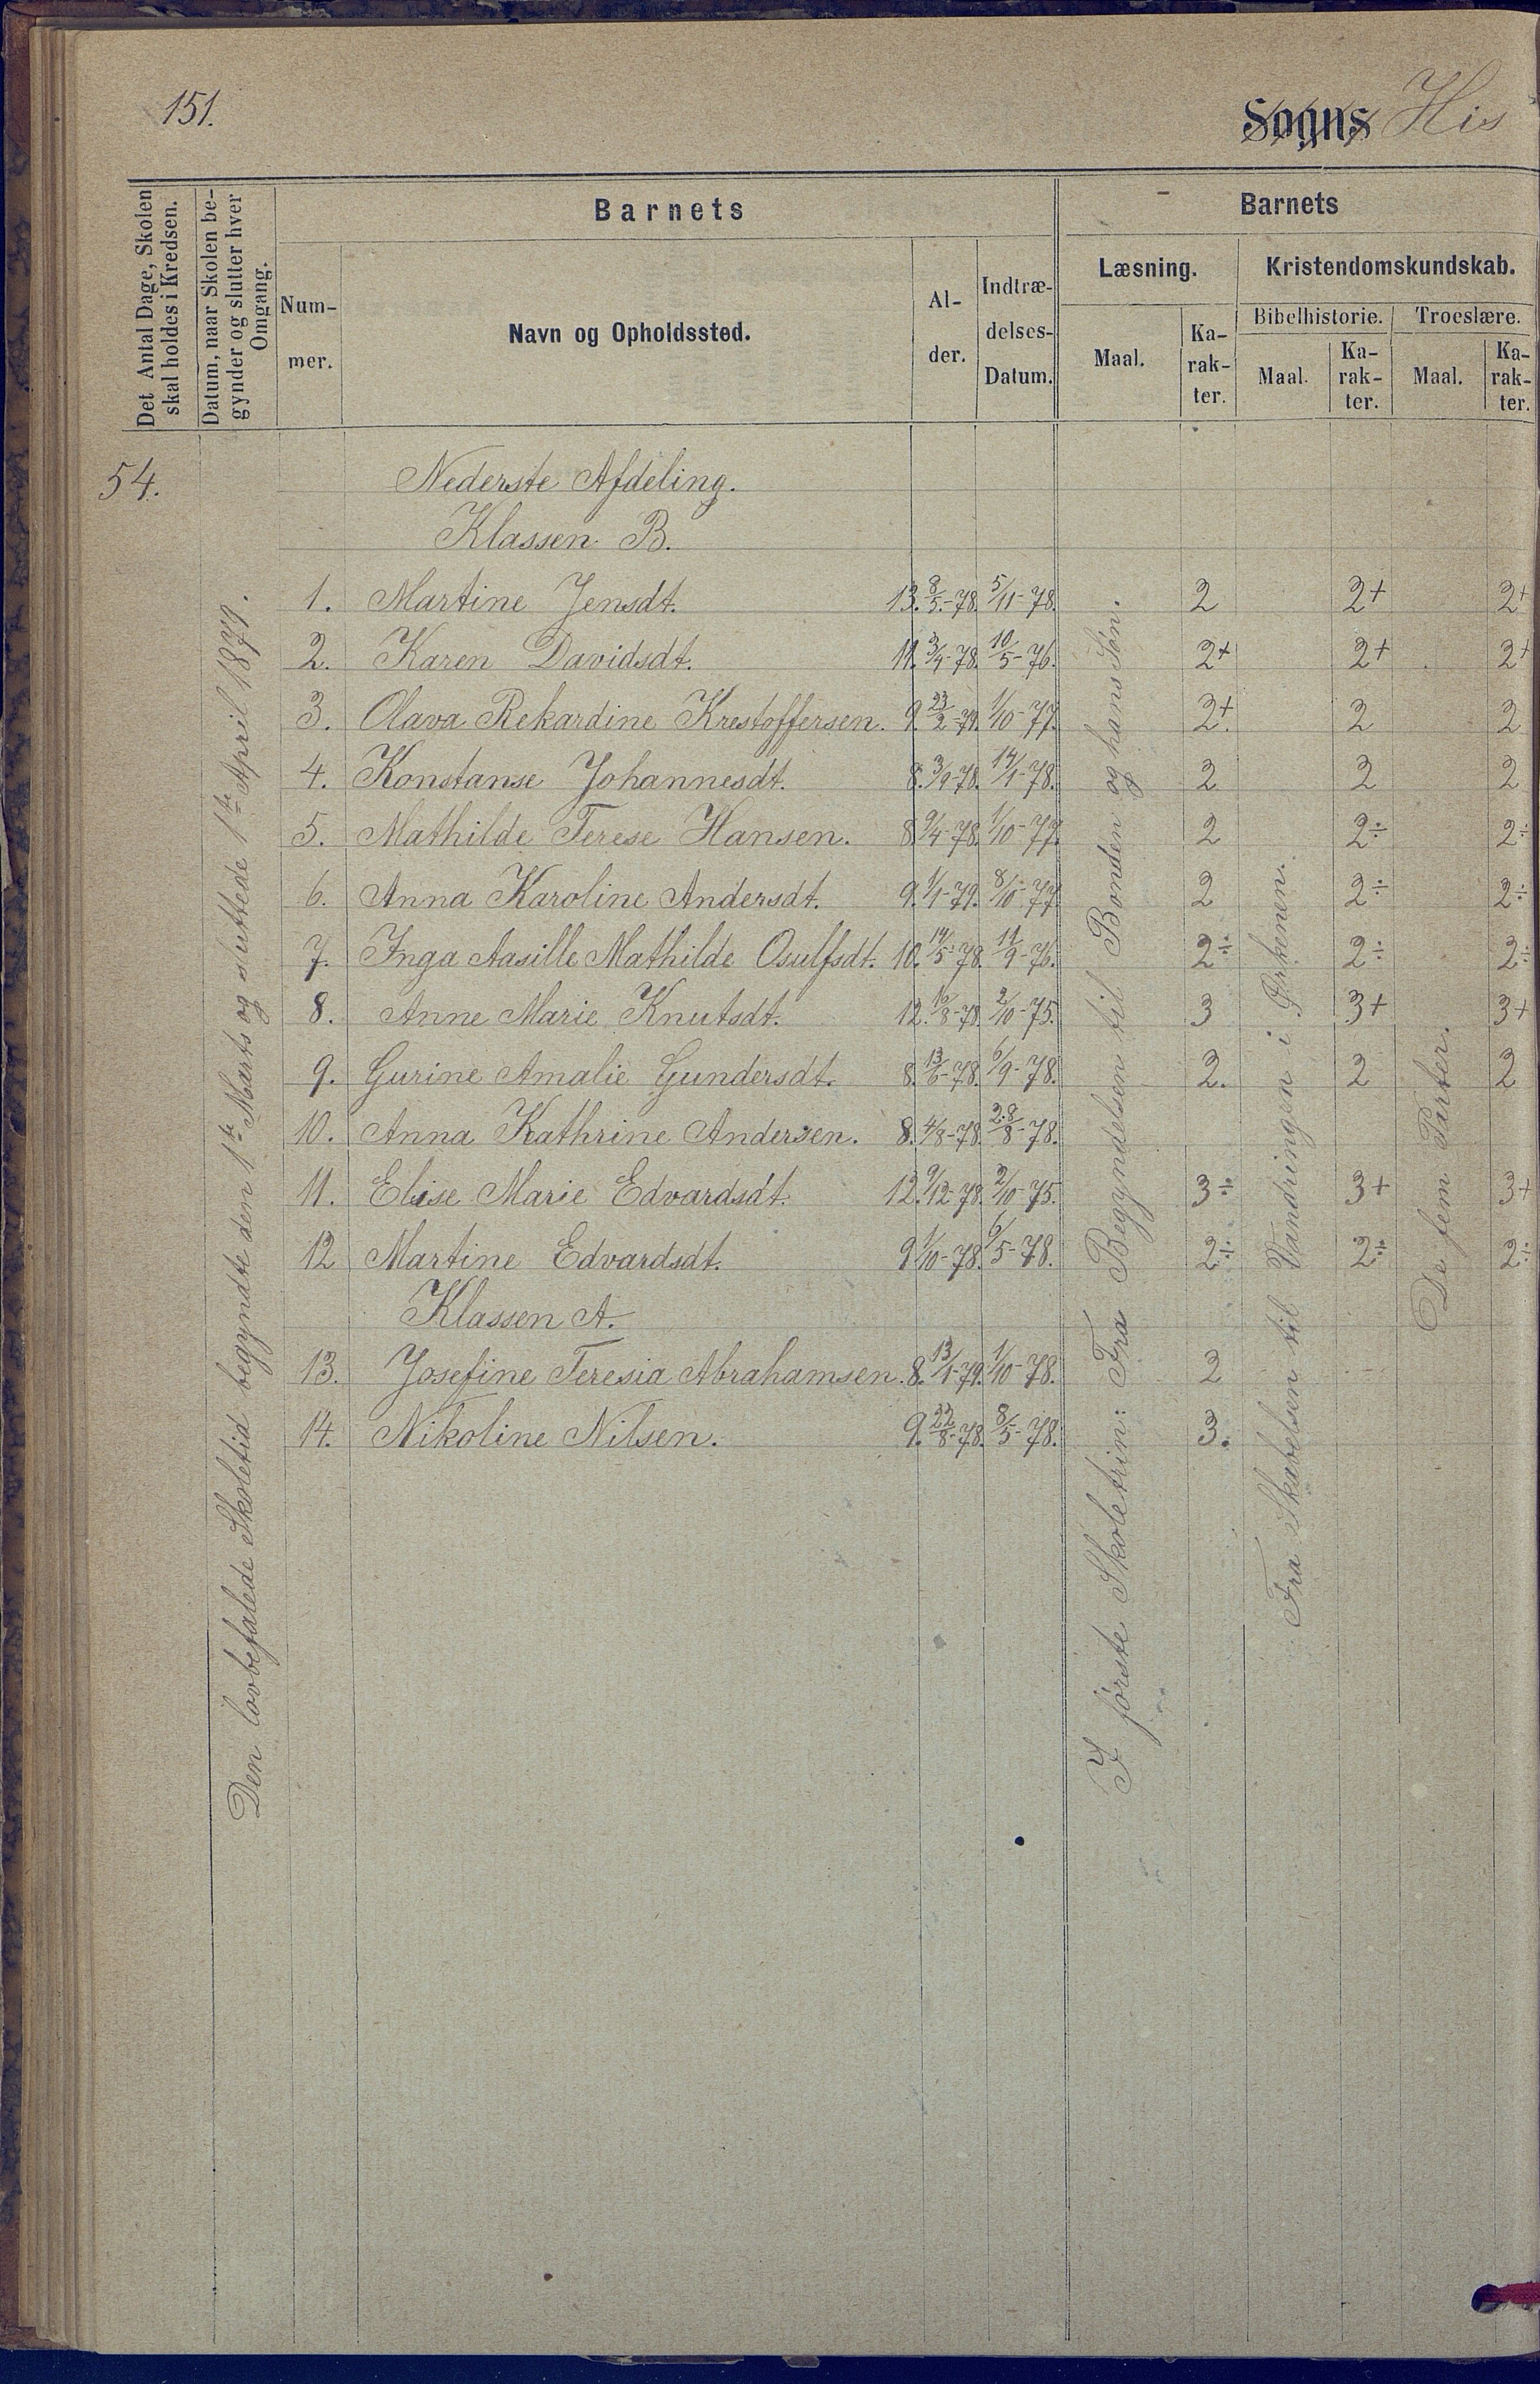 151.
Sogns His
Det Antal Dage, Skolen skal holdes i Kredsen.
Datum, naar Skolen begynder og slutter hver Omgang.
Barnets
Nummer.
Navn og Opholdssted.
Alder.
Indtrædelses-Datum.
Barnets
Læsning.
Maal.
Karakter.
Kristendomskundskab.
Bibelhistorie.
Maal.
Karakter.
Troeslære.
Maal.
Karakter.
54.
Den lovbefalede Skoletid begyndte den 1ste Marts og sluttede 1ste April 1879.
Nederste Afdeling.
Klassen B.
1. Martine Jensdt. 13. 8/5-78. 5/11-78. 2 2+ 2+
2. Karen Davidsdt. 11. 3/4-78. 10/5-76. 2+ 2+ 2+
3. Olava Rekardine Krestoffersen. 9. 23/2-79. 1/10-77. 2+ 2 2
4. Konstanse Johannesdt. 8. 3/9-78. 14/1-78. 2 2 2
5. Mathilde Terese Hansen. 8. 9/4-78. 1/10-77. 2 2÷ 2÷
6. Anna Karoline Andersdt. 9. 1/1-79. 8/10-77. 2 2÷ 2÷
7. Inga Aasille Mathilde Osulfsdt. 10. 14/5-78. 11/9-76. 2÷ 2÷ 2÷
8. Anne Marie Knutsdt. 12. 16/8-78. 2/10-75. 3 3+ 3+
9. Gurine Amalie Gundersdt. 8. 13/6-78. 6/9-78. 2. 2 2
10. Anna Kathrine Andersen. 8. 4/8-78. 28/8-78.
11. Elise Marie Edvardsdt. 12. 9/12-78. 2/10-75. 3÷ 3+ 3+
12 Martine Edvardsdt. 9 1/10-78. 6/5-78. 2÷ 2÷ 2÷
Klassen A.
13. Josefine Teresia Abrahamsen. 8. 13/1-79. 1/10-78. 2
14. Nikoline Nilsen. 9. 22/8-78. 8/5-78. 3.
I første Skoletrin: Fra Begyndelsen til Bonden og hans Søn.
Fra Skabelsen til Vandringen i Ørkenen.
De fem Parter.